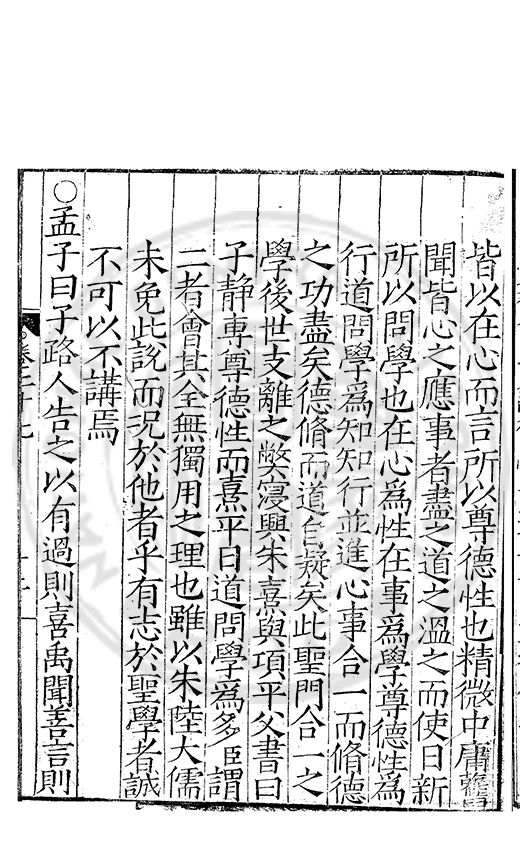 皆以在心而言所以尊德性也精微中庸舊
聞皆心之應事者盡之道之溫之而使日新
所以問學也在心爲性在事爲學尊德性爲
行道問學爲知知行並進心事合一而脩德
之功盡矣德脩而道自凝矣此聖門合一之
學後世支離之弊寖興朱熹與項平父書曰
子静專尊德性而熹平日道問學爲多臣謂
二者會其全無獨用之理也雖以朱陸大儒
未免此說而況於他者乎有志於聖學者誠
不可以不講焉
○孟子曰子路人告之以有過則喜禹聞善言則